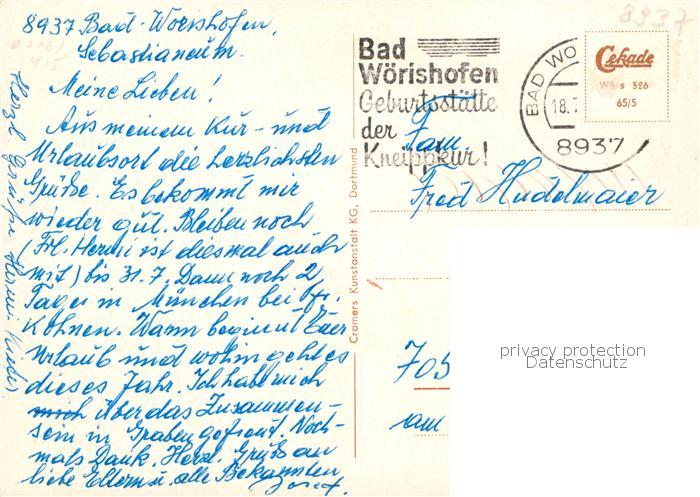 8937 Bad-Wörishofen,
Sebastianeum.
Meine Lieben!
Aus meinem Kur- und
Urlaubsort die herzlichsten
Grüße. Es bekommt mir
wieder gut. Bleiben noch
(Frl. Hermi ist diesmal auch
mit) bis 31.7. Dann noch 2
Tage in München bei
Kohnen. Wann beginnt Euer
Urlaub und wohin geht es
dieses Jahr. Ich habe mich
mich über das Zusammen-
sein in Graben gefreut. Noch-
mals Dank. Herzl. Grüße an
liebe Eltern u. alle Bekannten
Josef.
Herzl. Grüße Hermi
Cramers Kunstanstalt KG, Dortmund
Bad
Wörishofen
Geburtsstätte
der
Kneippkur!
BAD WÖ
18.
8937
8937
Cekade
Wörs 526
65/5
Fam.
Fred Hudelmaier
705
am
privacy protection
Datenschutz